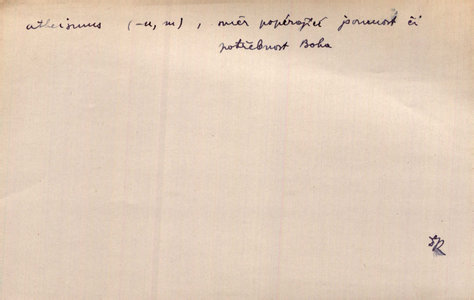 atheismus (-u, m), směr popírající jsoucnost či
potřebnost Boha